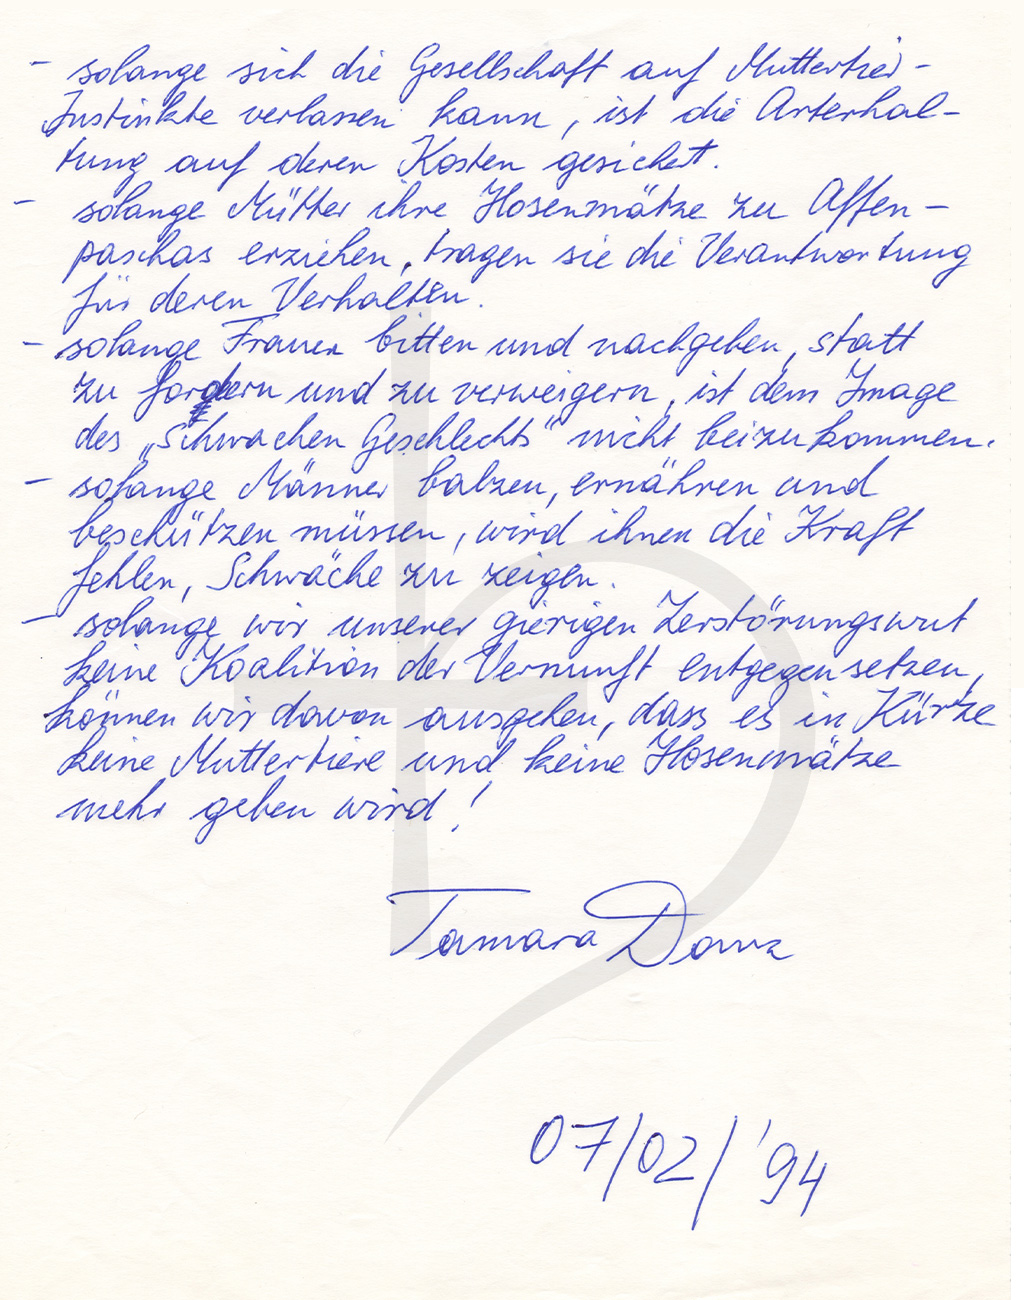 - solange sich die Gesellschaft auf Muttertier-
Instinkte verlassen kann, ist die Arterhal-
tung auf deren Kosten gesichert.
- solange Mütter ihre Hosenmätze zu Affen-
paschas erziehen, tragen sie die Verantwortung
für deren Verhalten.
- solange Frauen bitten und nachgeben, statt
zu fordern und zu verweigern, ist dem Image
des „Schwachen Geschlechts" nicht beizukommen.
- solange Männer balzen, ernähren und
beschützen müssen, wird ihnen die Kraft
fehlen, Schwäche zu zeigen.
- solange wir unserer gierigen Zerstörungswut
keine Koalition der Vernunft entgegensetzen,
können wir davon ausgehen, dass es in Kürze
keine Muttertiere und keine Hosenmätze
mehr geben wird!
Tamara Danz
07/02/'94